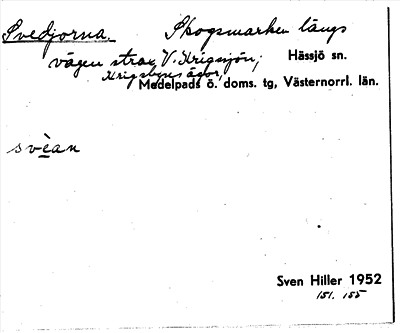 Svedjorna. Skogsmarken längs
vägen strax V. Krigsjön, Hässjö sn.
Krigsbyns ägor,
Medelpads ö. doms. tg, Västernorrl. län.
svèan
Sven Hiller 1952
151. 155